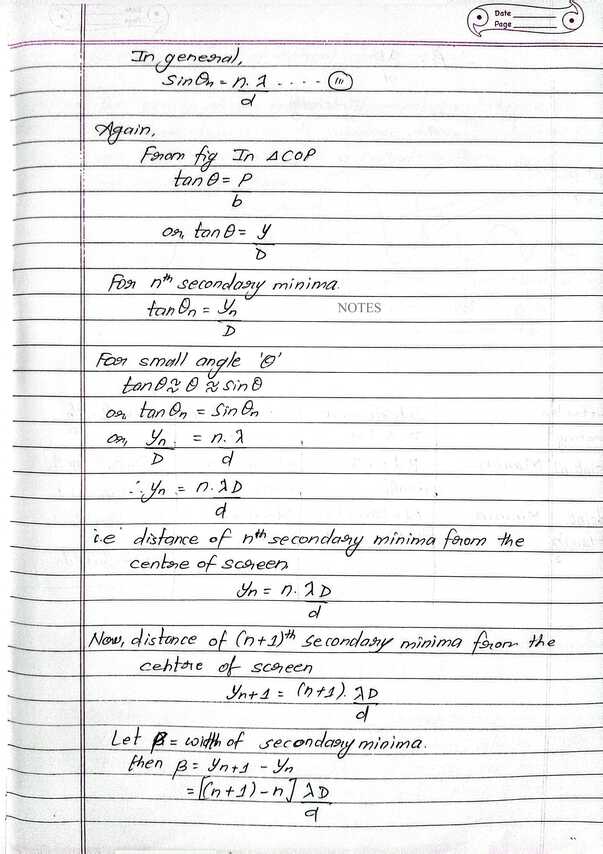 Date
Page
In general,
sinθn = n.λ/d .... (iii)
Again,
From fig In ΔCOP
tanθ = P/b
or, tanθ = y/D
For nth secondary minima.
tanθn = yn/D
NOTES
For small angle 'θ'
tanθ ≈ θ ≈ sinθ
or, tanθn = sinθn
or, yn/D = n.λ/d
∴ yn = n.λD/d
i.e distance of nth secondary minima from the
centre of screen
yn = n.λD/d
Now, distance of (n+1)th secondary minima from the
centre of screen
yn+1 = (n+1).λD/d
Let β = width of secondary minima.
then β = yn+1 - yn
= [(n+1)-n] λD/d